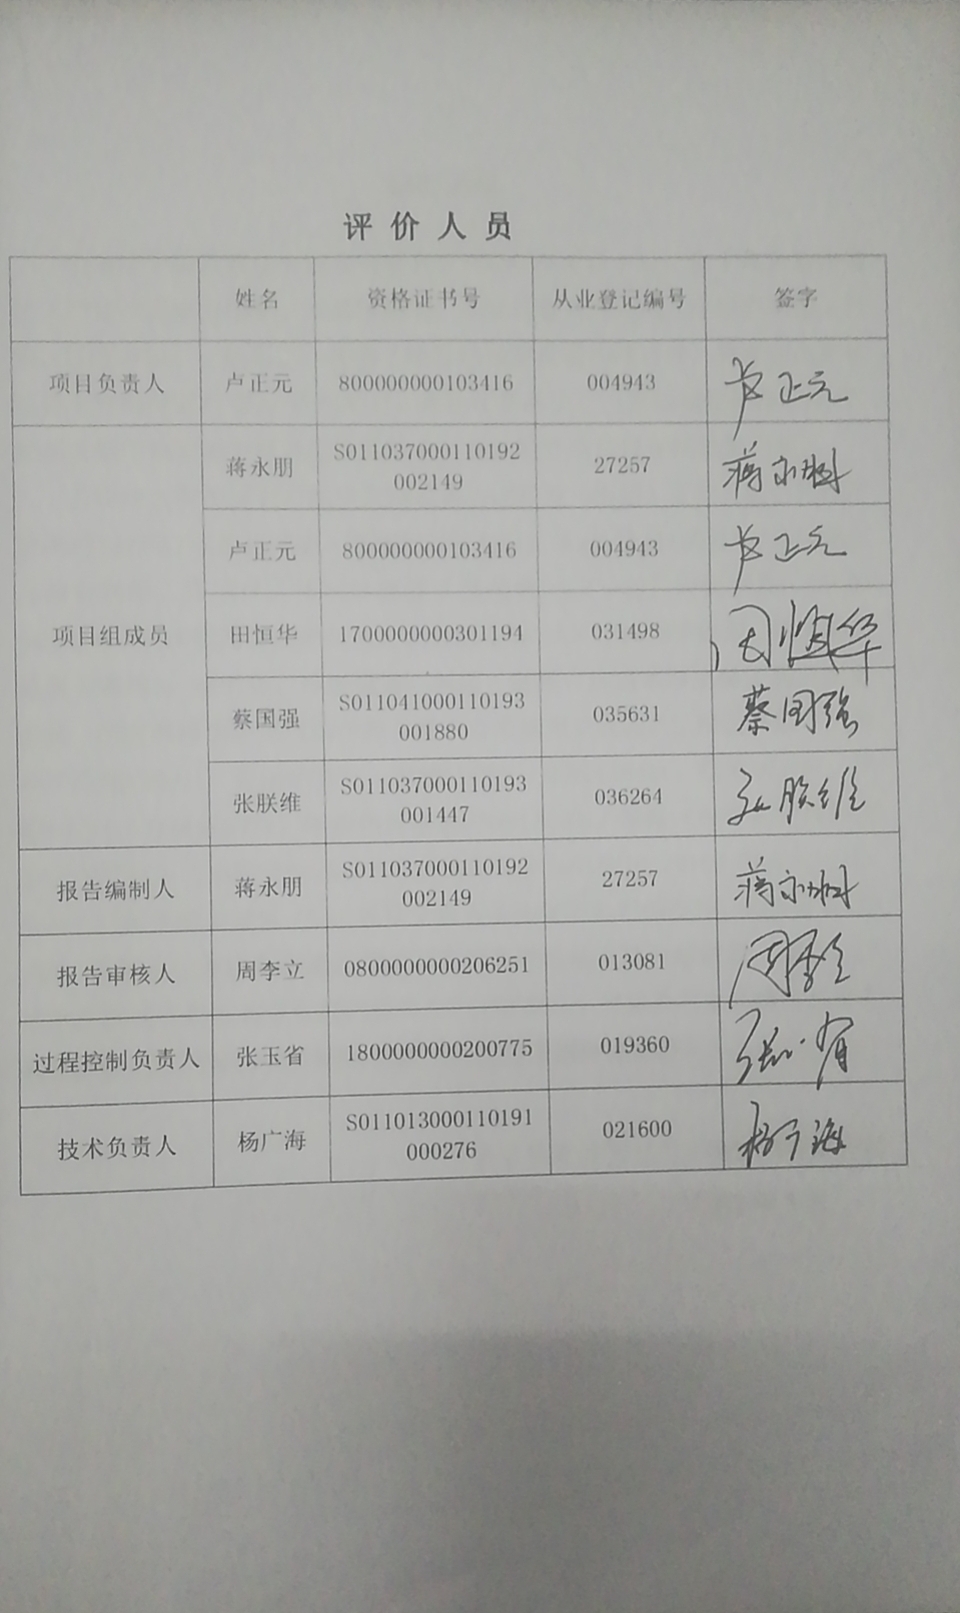 评价人员
姓名 资格证书号 从业登记编号 签字
项目负责人 卢正元 800000000103416 004943 卢正元
项目组成员
蒋永朋 S011037000110192 27257 蒋永朋
002149
卢正元 800000000103416 004943 卢正元
田恒华 1700000000301194 031498 田恒华
蔡国强 S011041000110193 035631 蔡国强
001880
张朕维 S011037000110193 036264 张朕维
001447
报告编制人 蒋永朋 S011037000110192 27257 蒋永朋
002149
报告审核人 周李立 0800000000206251 013081 周李立
过程控制负责人 张玉省 1800000000200775 019360 张玉省
技术负责人 杨广海 S011013000110191 021600 杨广海
000276